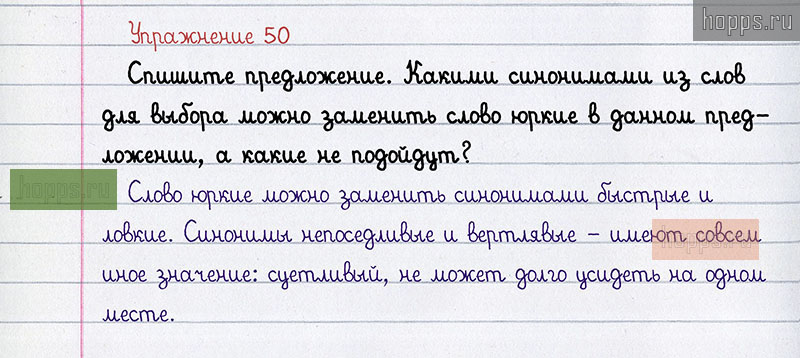 hopps.ru
Упражнение 50
Спишите предложение. Какими синонимами из слов
для выбора можно заменить слово юркие в данном пред-
ложении, а какие не подойдут?
hopps.ru
Слово юркие можно заменить синонимами быстрые и
ловкие. Синонимы непоседливые и вертлявые - имеют совсем
hopps.ru
иное значение: суетливый, не может долго усидеть на одном
месте.